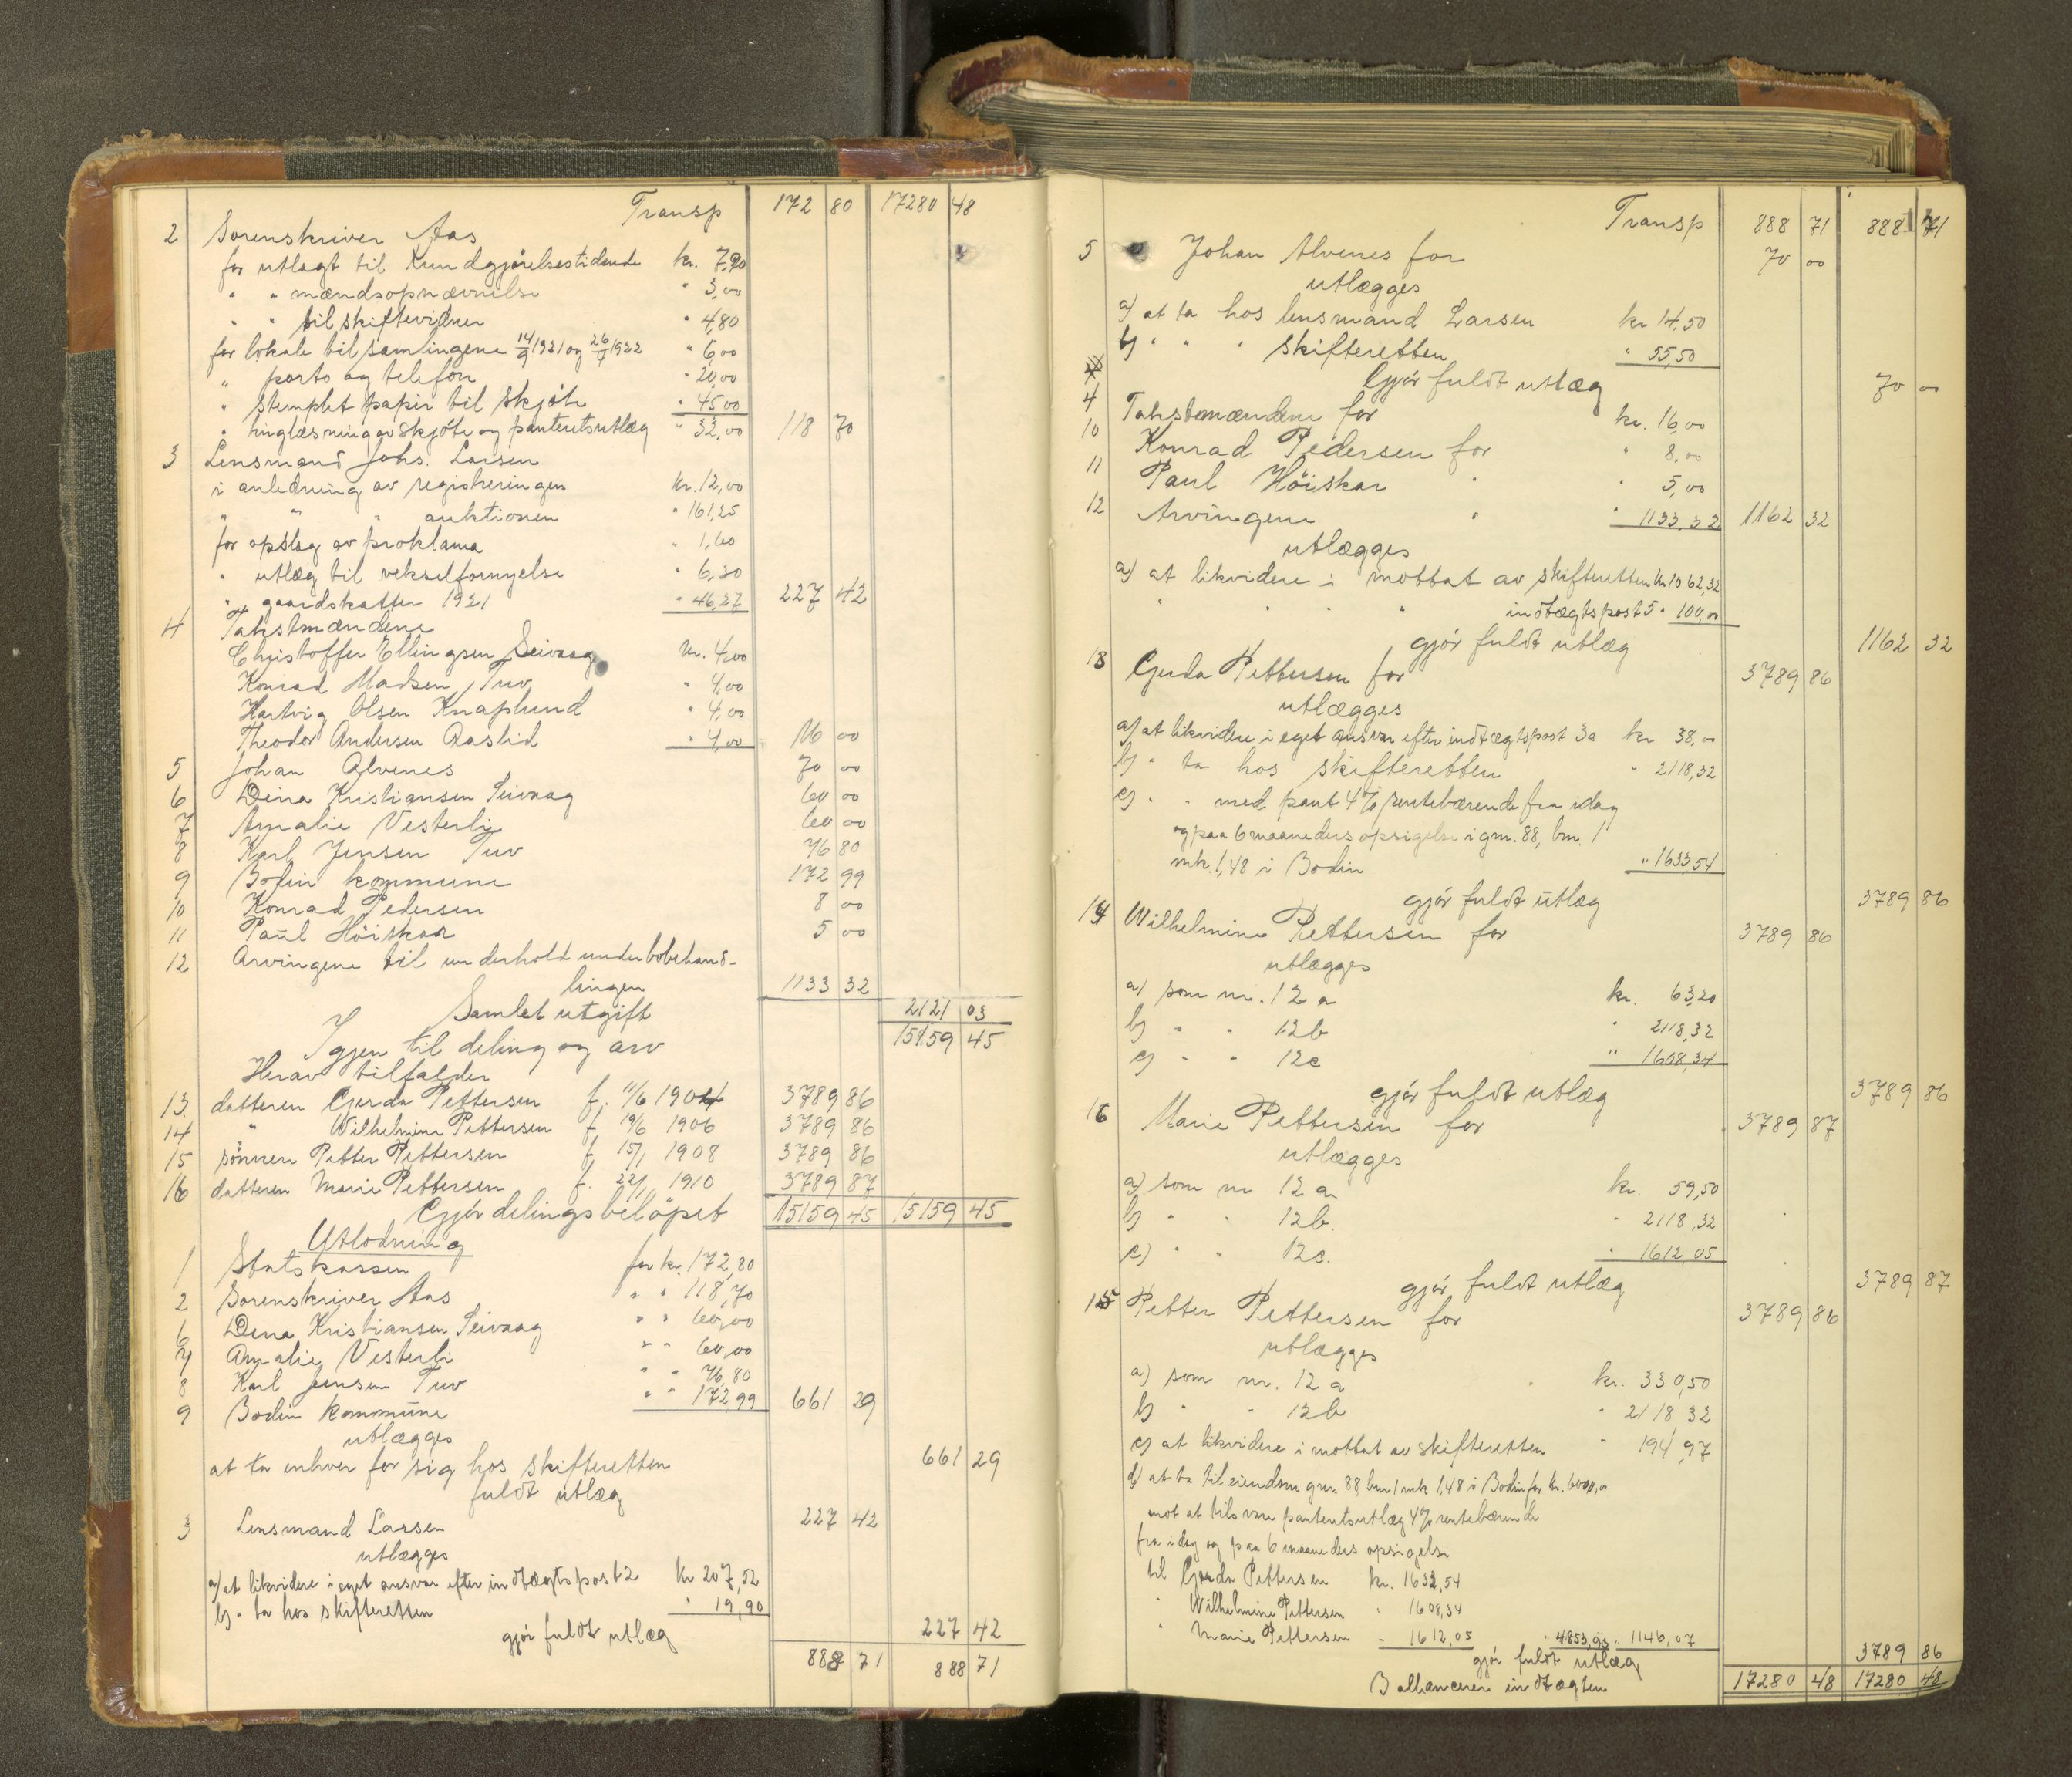 Transp 172 80 17280 48
2 Sorenskriver Aas
for utlagt til Kundgjörelsestidende kr. 7,90
" " mændsopnævnelse " 3,00
" " til skiftevidner " 4,80
for lokale til samlingene 14/9 1921 og 26/9 1922 " 6,00
" porto og telefon " 20,00
" stemplet papir til skjöte " 45,00
" tinglæsning av skjöte og panteretsutlæg " 32,00 118 70
3 Lensmand Johs. Larsen
i anledning av registreringen kr. 12,00
" " " auktionen " 161,25
for opslag av proklama " 1,60
" utlæg til vekselfornyelse " 6,30
" gaardskatter 1921 " 46,27 227 42
4 Takstmændene
Christoffer Ellingsen Seivaag kr. 4,00
Konrad Madsen Tuv " 4,00
Hartvig Olsen Knaplund " 4,00
Theodor Andersen Aaslid " 4,00 16 00
5 Johan Alvenes 70 00
6 Dina Kristiansen Seivaag 60 00
7 Amalie Vesterli 60 00
8 Karl Jensen Tuv 76 80
9 Bodin kommune 172 99
10 Konrad Pedersen 8 00
11 Paul Höiskar 5 00
12 Arvingene til underhold under bobehand-
lingen 1133 32
Samlet utgift 2121 03
Igjen til deling og arv 15159 45
Herav tilfalder
13. datteren Gjerda Pettersen f. 11/6 1904 3789 86
14 " Wilhelmine Pettersen f 19/6 1906 3789 86
15 sönnen Petter Pettersen f. 15/1 1908 3789 86
16 datteren Marie Pettersen f. 22/1 1910 3789 87
Gjör delingsbelöpet 15159 45 15159 45
Utlodning
1 Statskassen for kr. 172,80
2 Sorenskriver Aas " " 118,70
6 Dina Kristiansen Seivaag " " 60,00
7 Amalie Vesterli " " 60,00
8 Karl Jensen Tuv " " 76,80
9 Bodin kommune " " 172,99 661 29
utlægges
at ta enhver for sig hos skifteretten 661 29
fuldt utlæg
3 Lensmand Larsen 227 42
utlægges
a) at likvidere i eget ansvar efter indtægtspost 2 kr 207,52
b) " ta hos skifteretten " 19,90
gjör fuldt utlæg 227 42
888 71 888 71
Transp 888 71 888 71
5 Johan Alvenes for 70 00
utlægges
a) at ta hos lensmand Larsen kr 14,50
b) " " " skifteretten " 55,50
Gjör fuldt utlæg 70 00
4 Takstmændene for kr. 16,00
10 Konrad Pedersen for " 8,00
11 Paul Höiskar " " 5,00
12 Arvingene " " 1133,32 1162 32
utlægges
a) at likvidere i mottat av skifteretten kr 1062,32
" " " " indtægtspost 5 " 100,00
gjör fuldt utlæg 1162 32
13 Gjerda Pettersen for 3789 86
utlægges
a) at likvidere i eget ansvar efter indtægtspost 3a kr 38,00
b) " ta hos skifteretten " 2118,32
c) " " med pant 4% rentebærende fra idag
og paa 6 maaneders opsigelse i gnr. 88, bnr. 1
mk. 1,48 i Bodin " 1633,54
gjör fuldt utlæg 3789 86
14 Wilhelmine Pettersen for 3789 86
utlægges
a) som nr. 12 a kr. 63,20
b) " " 12b " 2118,32
c) " " 12c " 1608,34
gjör fuldt utlæg 3789 86
16 Marie Pettersen for 3789 87
utlægges
a) som nr 12 a kr. 59,50
b) " " 12b. " 2118,32
c) " " 12c. " 1612,05
gjör fuldt utlæg 3789 87
15 Petter Pettersen for 3789 86
utlægges
a) som nr. 12 a kr. 330,50
b) " " 12b " 2118 32
c) at likvidere i mottat av skifteretten " 194,97
d) at ta til eiendom gnr. 88, bnr 1 mk 1,48 i Bodin for kr. 6000,00
mot at tilsvare panteretsutlæg 4% rentebærende
fra idag og paa 6 maaneders opsigelse
til Gjerda Pettersen kr. 1633,54
" Wilhelmine Pettersen " 1608,34
" Marie Pettersen " 1612,05 " 4853,93 " 1146,07
gjör fuldt utlæg 3789 86
Ballancerer indtægten 17280 48 17280 48